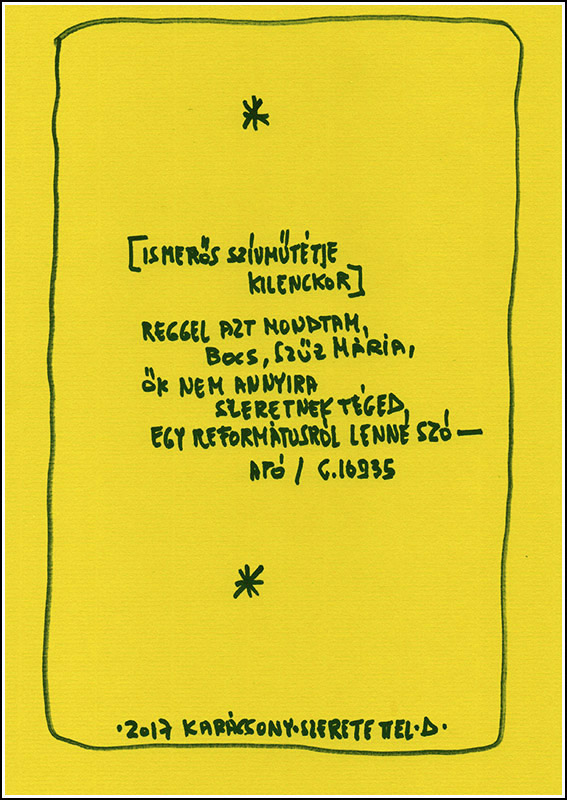 *
[ISMERŐS SZÍVMŰTÉTJE
KILENCKOR]
REGGEL AZT MONDTAM,
BOCS, SZŰZ MÁRIA,
ŐK NEM ANNYIRA
SZERETNEK TÉGED,
EGY REFORMÁTUSRÓL LENNE SZÓ —
APÓ / G.16935
*
·2017 KARÁCSONY·SZERETETTEL·D·